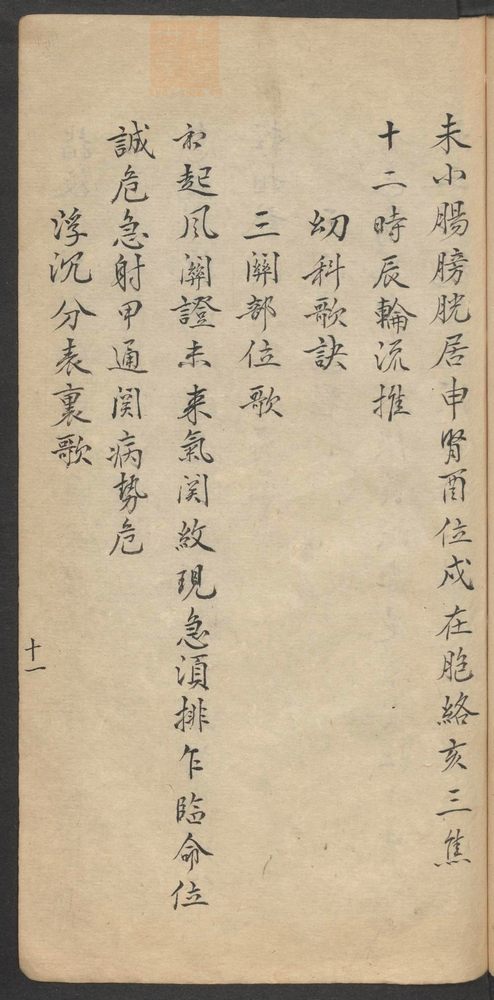 未小腸膀胱居申腎酉位戌在胞絡亥三焦
十二時辰輪流推
幼科歌訣
三關部位歌
初起风關證未来氣関紋現急須排乍臨命位
誠危急射甲通関病势危
浮沉分表裏歌
十一